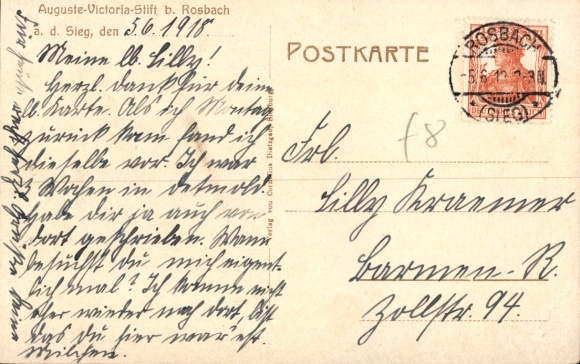 Auguste-Victoria-Stift b. Rosbach
a. d. Sieg, den 5.6.1918.
Meine lb. Lilly!
Herzl. dank für deine
lb. Karte. Als ich Montag
zurück kam fand ich
dieselbe vor. Ich war
3 Wochen in Detmold.
Habe dir ja auch von
dort geschrieben. Wann
besuchst du mich eigent-
lich mal? Ich komme nicht
eher wieder nach dort, bist
das du hier war'est.
Milchen.
POSTKARTE
ROSBACH
(SIEG)
f8
Frl.
Lilly Kraemer
Barmen-R.
Zollstr. 94.
Verlag von Cornelius